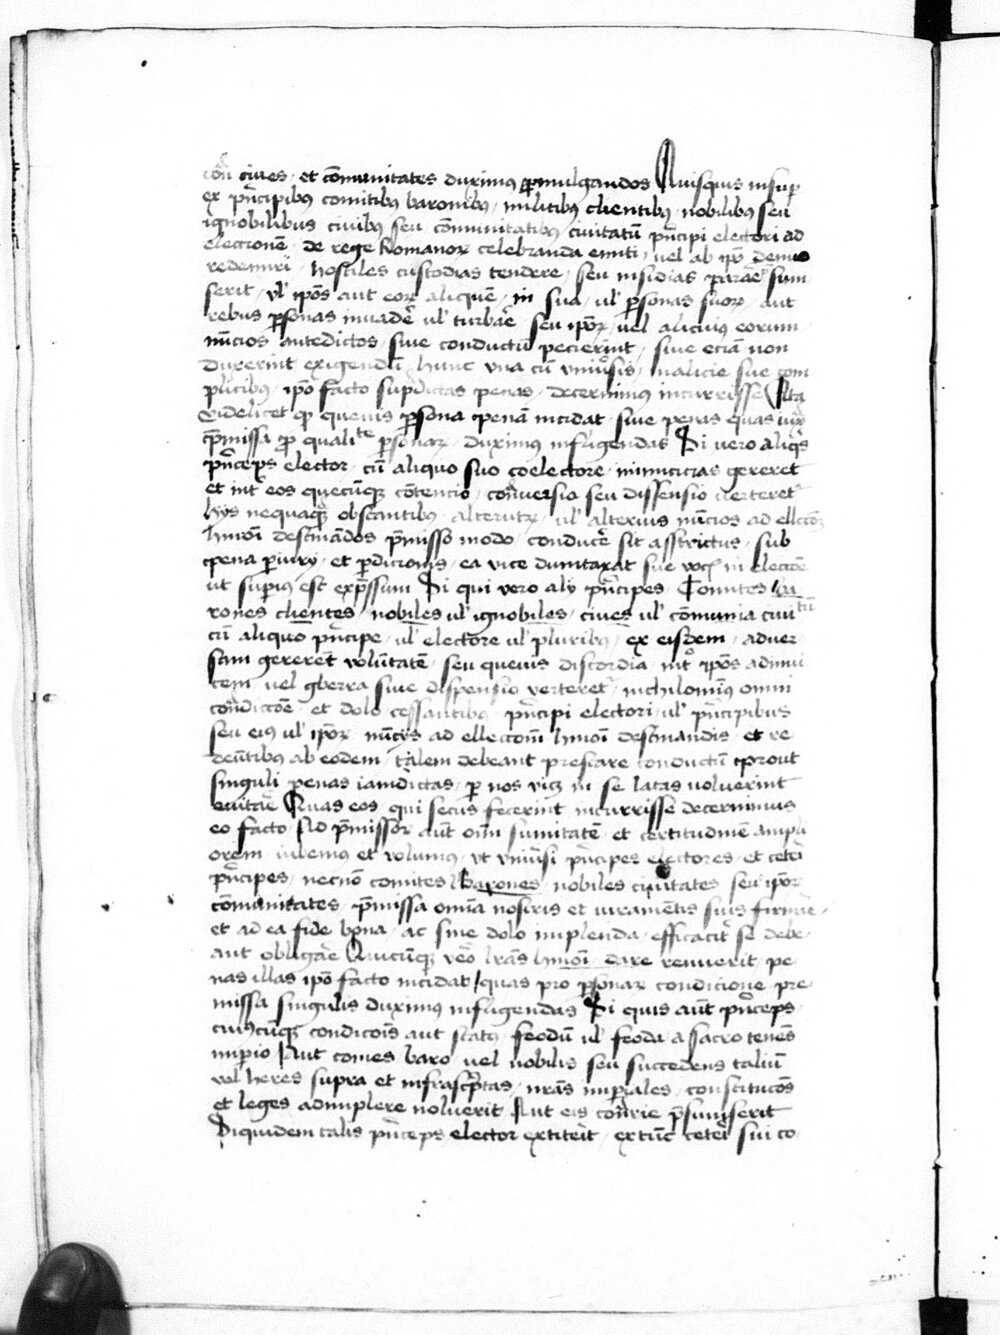 con̄ ciues et com̄unitates duximus ꝓmulgandos Quisquis insuꝑ
ex pͥncipibus comitibus baronibus militibus clientibus nobilibus seu
ignobilibus ciuibus seu com̄unitatibus ciuitatū pͥncipi electori ad
eleccionē de rege Romanoꝝ celebranda eunti uel ab ipͣ demus
redeunti hostiles custodias tendere seu insidias ꝑare p̄sum
serit ul̛ ipōs aut eoꝝ aliquē in sua ul̛ ꝑsonas suoꝝ aut
rebus ꝑsonas inuadē ul̛ turbare seu ipōꝝ uel alicuius eorum
nūcios antedictos siue conductū pecierint siue eciā non
duxerint exigendū hunc una cū uniuersis malicie sue com
plicibus ipō facto supͣdictas penas decernimus incurrisse Ita
videlicet qͦ queuis ꝑsona penā incidat siue penas quas iuxͣ
p̄missa ꝓ qualite ꝑsonaꝝ duximus infligendas Si vero aliqͥs
pͥnceps elector cū aliquo suo coelectore inimicicias gereret
et int̛ eos quecūqꝫ contencio conͭuersia seu dissensio uerteret
hys nequaqͣ obstantibus alterutꝝ ul̛ alterius nūcios ad ellccōꝫ
hmōi destinādos p̄misso modo conducē sit asstrictus sub
pena ꝑiury et ꝑdicionis ea vice dumtaxat sue vocͥ in eleccōe
ut supius est exp̄ssum Si qui vero aly pͥncipes Comites ba
rones clientes nobiles ul̛ ignobiles ciues ul̛ com̄unia ciuitū
cū aliquo pͥncipe ul̛ electore ul̛ pluribus ex eisdem aduer
sam gererēt volūtatē seu queuis discordia int̛ ipōs adinui
cem uel gwerra siue dispensio verteret nichilominꝰ omni
condicōē et dolo cessantibus pͥncipi electori ul̛ pͥncipibus
seu eius ul̛ ipōꝝ nūcys ad elleccōm hmōi destinandis et re
deūtibus ab eodem talem debeant prestare conductū prout
singuli penas iamdictas ꝑ nos vicꝫ in se latas voluerint
euitare Quas eos qui secus fecerint incurrisse decernimus
eo facto Ad p̄missoꝝ aut̄ om̄ sumitatē et certitudinē ampli
orem iubemus et volumus vt vniūsi pͥncipes electores et ceteri
pͥncipes necnō comites Barones nobiles ciuitates seu ipōꝝ
com̄unitates p̄missa omīa nostris et iuramētis suis firmare
et ad ea fide bona ac sine dolo implenda efficacit̛ se debe
ant obligare Quicūqꝫ vēo lr̄as hmōi dare rennuerit pe
nas illas ipō facto incidat quas pro ꝑsonaꝝ condicione pre
missa singulis duximus infligendas Si quis aut̄ pͥnceps
cuiuscūqꝫ condicōis aut status feodū ul̛ feoda a sacro tenēs
imperio Aut comes baro uel nobilis seu succedens taliū
vel heres supra et infrascͥptas nr̄as impͥales constitucōēs
et leges adimplere noluerit Aut eis conͭrie p̄sumpserit
Siquidem talis pͥnceps elector extiterit extūc ceteri sui co